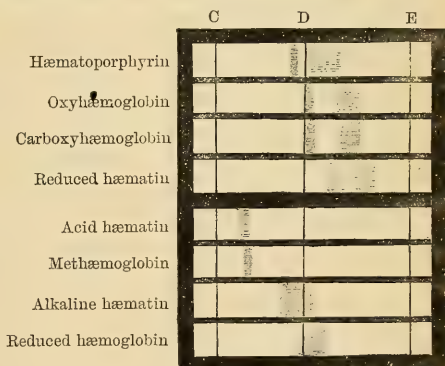 C D E
Hæmatoporphyrin
Oxyhæmoglobin
Carboxyhæmoglobin
Reduced hæmatin
Acid hæmatin
Methæmoglobin
Alkaline hæmatin
Reduced hæmoglobin